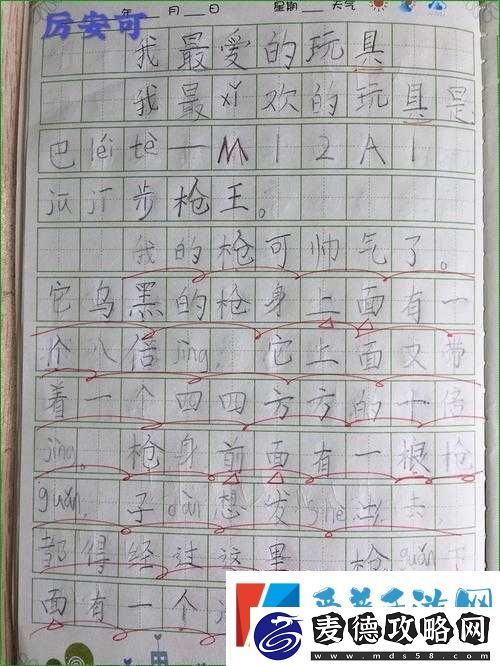 厉安可
年 月 日 星期 天气
我最爱的玩具
我最xǐ欢的玩具是
巴léi tè一M12A1
jū jī步枪王。
我的枪可帅气了。
它乌黑的枪身上面有一
个八倍jìng,它上面又带
着一个四四方方的十倍
jìng。枪身前面有一根枪
guǎn,子dàn想发shè出去,
都得经过这里。枪guǎn下
面有一个
麦德攻略网
www.mds58.com